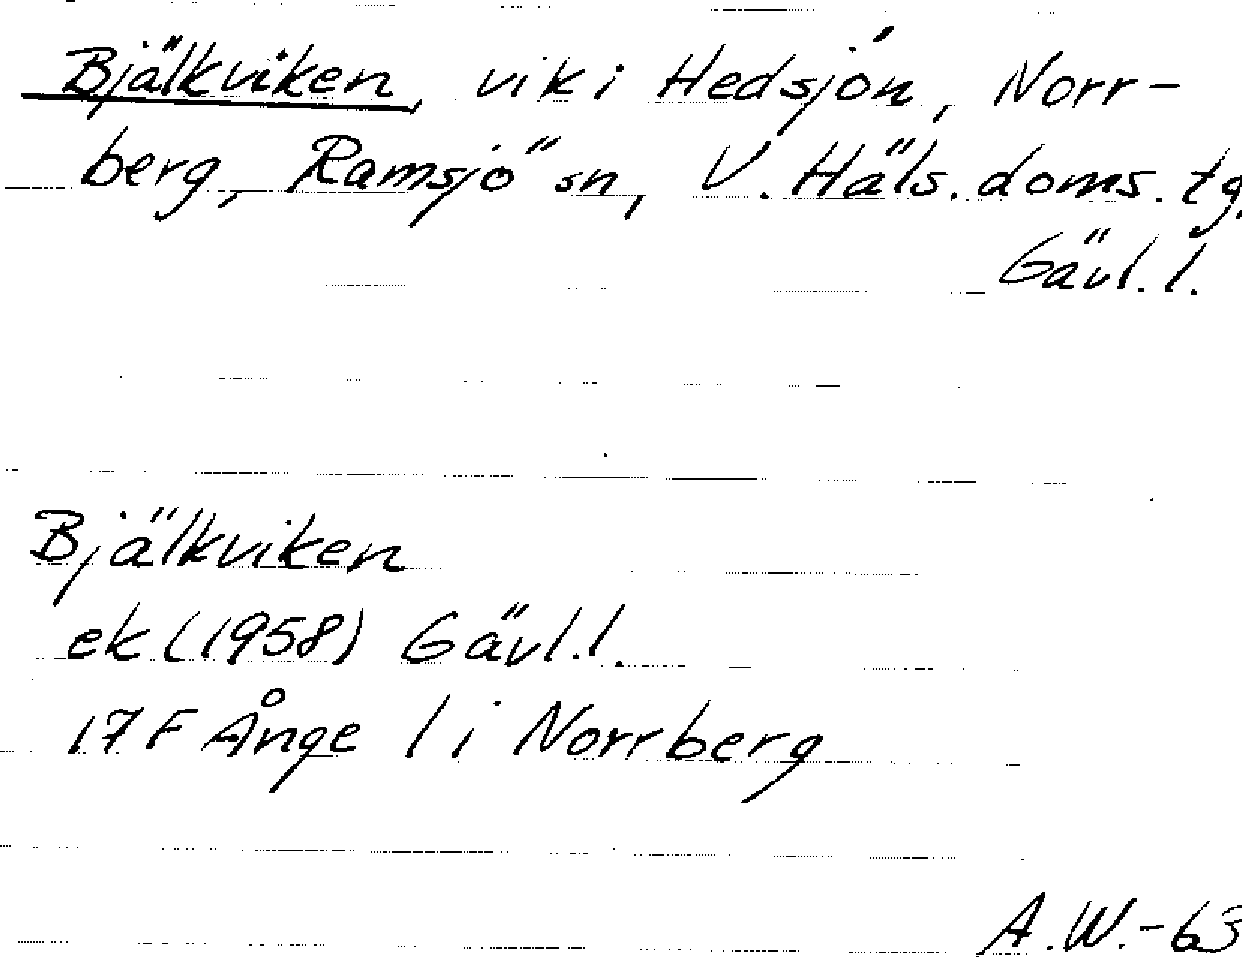 Bjälkviken, vik i Hedsjön, Norr-
berg, Ramsjö sn, V. Häls. doms. tg.
Gävl. l.
Bjälkviken
ek (1958) Gävl. l.
17 F Ånge 1 i Norrberg
A.W.-63